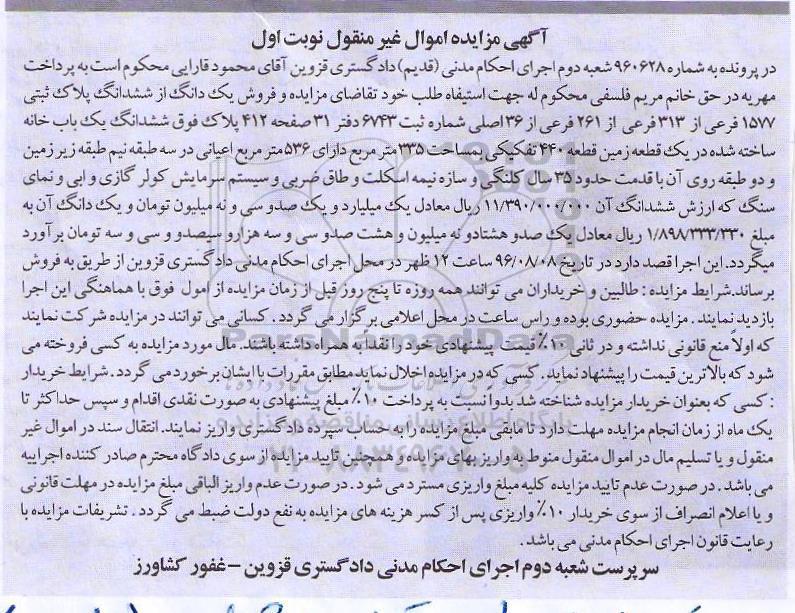 آگهی مزایده اموال غیر منقول نوبت اول
در پرونده به شماره ۹۶۰۶۲۸ شعبه دوم اجرای احکام مدنی (قدیم) دادگستری قزوین آقای محمود قارایی محکوم است به پرداخت
مهریه در حق خانم مریم فلسفی محکوم له جهت استیفاه طلب خود تقاضای مزایده و فروش یک دانگ از ششدانگ پلاک ثبتی
۱۵۷۷ فرعی از ۳۱۳ فرعی از ۲۶۱ فرعی از ۳۶ اصلی شماره ثبت ۶۷۴۳ دفتر ۳۱ صفحه ۴۱۲ پلاک فوق ششدانگ یک باب خانه
ساخته شده در یک قطعه زمین قطعه ۴۴۰ تفکیکی بمساحت ۳۳۵ متر مربع دارای ۵۳۶ متر مربع اعیانی در سه طبقه نیم طبقه زیر زمین
و دو طبقه روی آن با قدمت حدود ۳۵ سال کلنگی و سازه نیمه اسکلت و طاق ضربی و سیستم سرمایش کولر گازی و ابی و نمای
سنگ که ارزش ششدانگ آن ۱۱/۳۹۰/۰۰۰/۰۰۰ ریال معادل یک میلیارد و یک صدو سی و نه میلیون تومان و یک دانگ آن به
مبلغ ۱/۸۹۸/۳۳۳/۳۳۰ ریال معادل یک صدو هشتادو نه میلیون و هشت صدو سی و سه هزارو سیصدو و سی و سه تومان برآورد
میگردد. این اجرا قصد دارد در تاریخ ۹۶/۰۸/۰۸ ساعت ۱۲ ظهر در محل اجرای احکام مدنی دادگستری قزوین از طریق به فروش
برساند.شرایط مزایده : طالبین و خریداران می توانند همه روزه تا پنج روز قبل از زمان مزایده از امول فوق با هماهنگی این اجرا
بازدید نمایند . مزایده حضوری بوده و راس ساعت در محل اعلامی برگزار می گردد . کسانی می توانند در مزایده شرکت نمایند
که اولاً منع قانونی نداشته و در ثانی ۱۰٪ قیمت پیشنهادی خود را نقدا به همراه داشته باشند. مال مورد مزایده به کسی فروخته می
شود که بالاترین قیمت را پیشنهاد نماید. کسی که در مزایده اخلال نماید مطابق مقررات با ایشان برخورد می گردد . شرایط خریدار
: کسی که بعنوان خریدار مزایده شناخته شد بدوا نسبت به پرداخت ۱۰٪ مبلغ پیشنهادی به صورت نقدی اقدام و سپس حداکثر تا
یک ماه از زمان انجام مزایده مهلت دارد تا مابقی مبلغ مزایده را به حساب سپرده دادگستری واریز نمایند. انتقال سند در اموال غیر
منقول و یا تسلیم مال در اموال منقول منوط به واریز بهای مزایده و همچنین تایید مزایده از سوی دادگاه محترم صادر کننده اجراییه
می باشد . در صورت عدم تایید مزایده کلیه مبلغ واریزی مسترد می شود . در صورت عدم واریز الباقی مبلغ مزایده در مهلت قانونی
و یا اعلام انصراف از سوی خریدار ۱۰٪ واریزی پس از کسر هزینه های مزایده به نفع دولت ضبط می گردد . تشریفات مزایده با
رعایت قانون اجرای احکام مدنی می باشد .
سرپرست شعبه دوم اجرای احکام مدنی دادگستری قزوین – غفور کشاورز